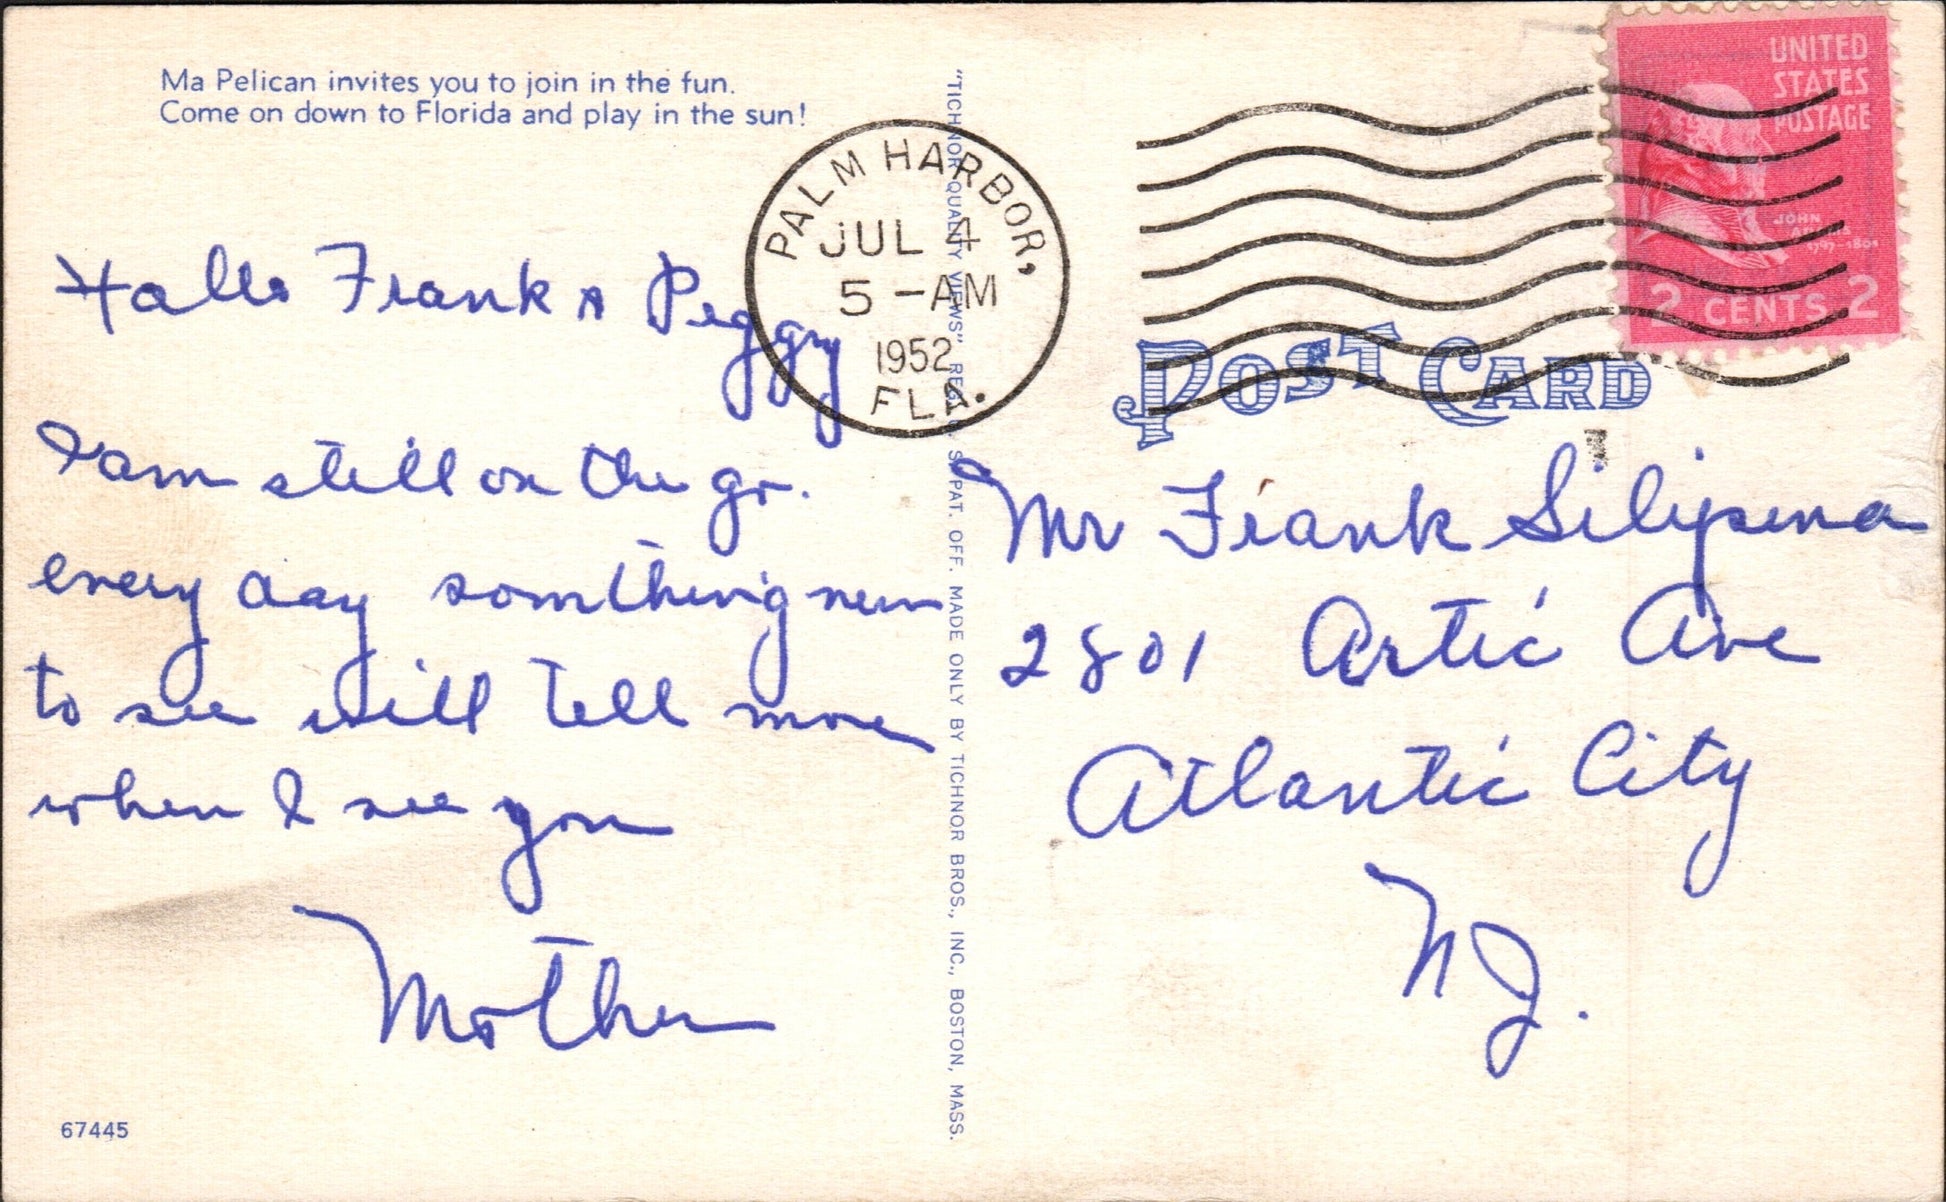 Ma Pelican invites you to join in the fun.
Come on down to Florida and play in the sun!
Hallo Frank & Peggy
I am still on the go.
every day somthing new
to see will tell more
when I see you
Mother
67445
"TICHNOR QUALITY VIEWS" REG. U. S. PAT. OFF. MADE ONLY BY TICHNOR BROS., INC., BOSTON, MASS.
PALM HARBOR,
JUL 4
5 - AM
1952
FLA.
UNITED
STATES
POSTAGE
JOHN
ADAMS
1797-1801
2 CENTS 2
POST CARD
Mr Frank
2801 Artic Ave
Atlantic City
N J.